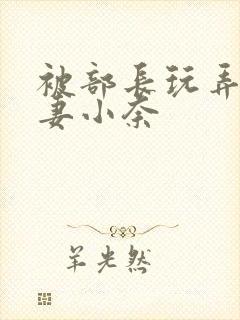 被部長玩弄
妻小奈
羊光然